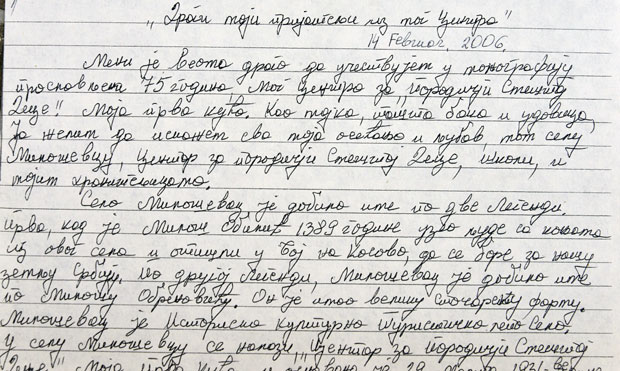 „Драги моји пријатељи из мог Центра"
14 Februar, 2006.
Мени је веома драго да учествујем у монографију
прослављена 75 година, мог центра за „породични Смештај
Деце"! Моја прва кућа. Као мајка, бака и удовица,
Ја желим да искажем сва моја осећања и љубав, мом селу
Милошевцу, Центар за породични Смештај Деце, школи, и
мојим хранитељицама.
Село Милошевац је добило име по две легенди.
Прва, кад је Милош Обилић 1389 године узео људе са коњима
из овог села и отишли у бој на Косово, да се боре за нашу
земљу Србију. По другој легенди, Милошевац је добило име
по Милошу Обреновићу. Он је имао велику сточарску фарму.
Милошевац је Историско културно туристичко лепо село.
У селу Милошевцу се налази „Центар за породични Смештај
Деце" Моја прва кућа